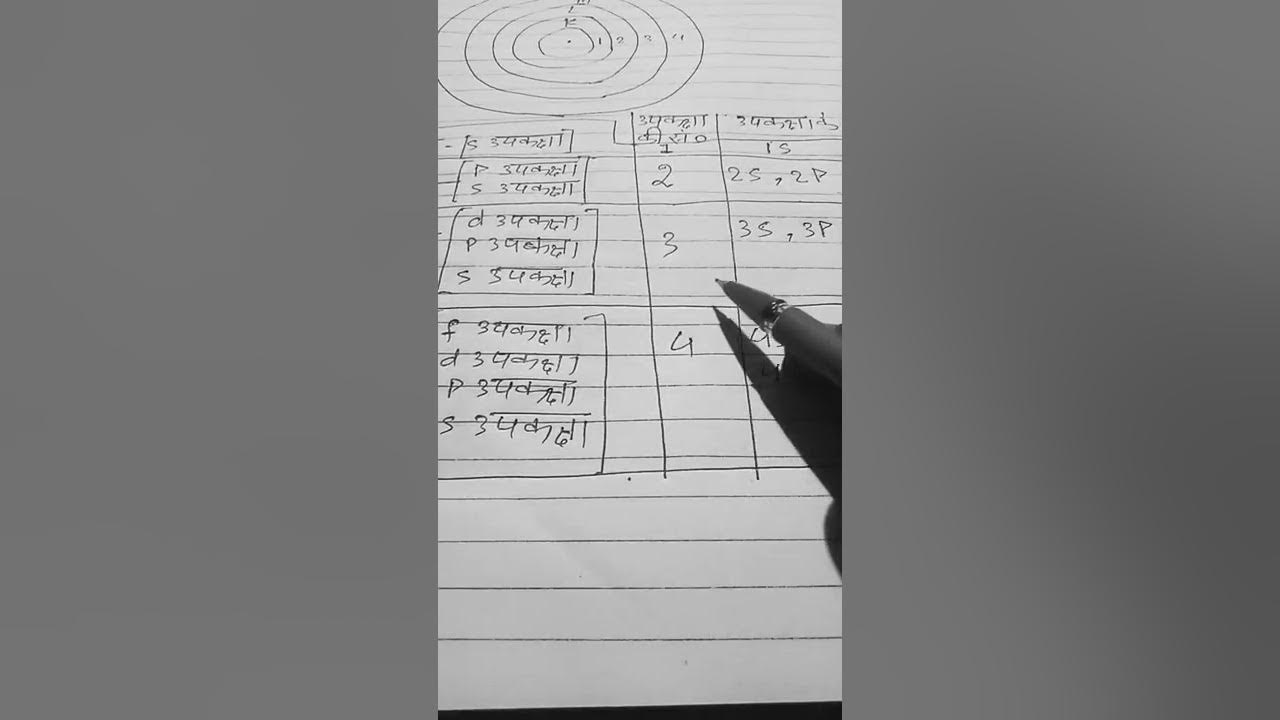 K
1 2 3 4
उपकक्षा
की सं०
उपकक्षा के
s उपकक्षा
1
1S
P उपकक्षा
s उपकक्षा
2
2S, 2P
d उपकक्षा
P उपकक्षा
s उपकक्षा
3
3S, 3P
f उपकक्षा
d उपकक्षा
P उपकक्षा
s उपकक्षा
4